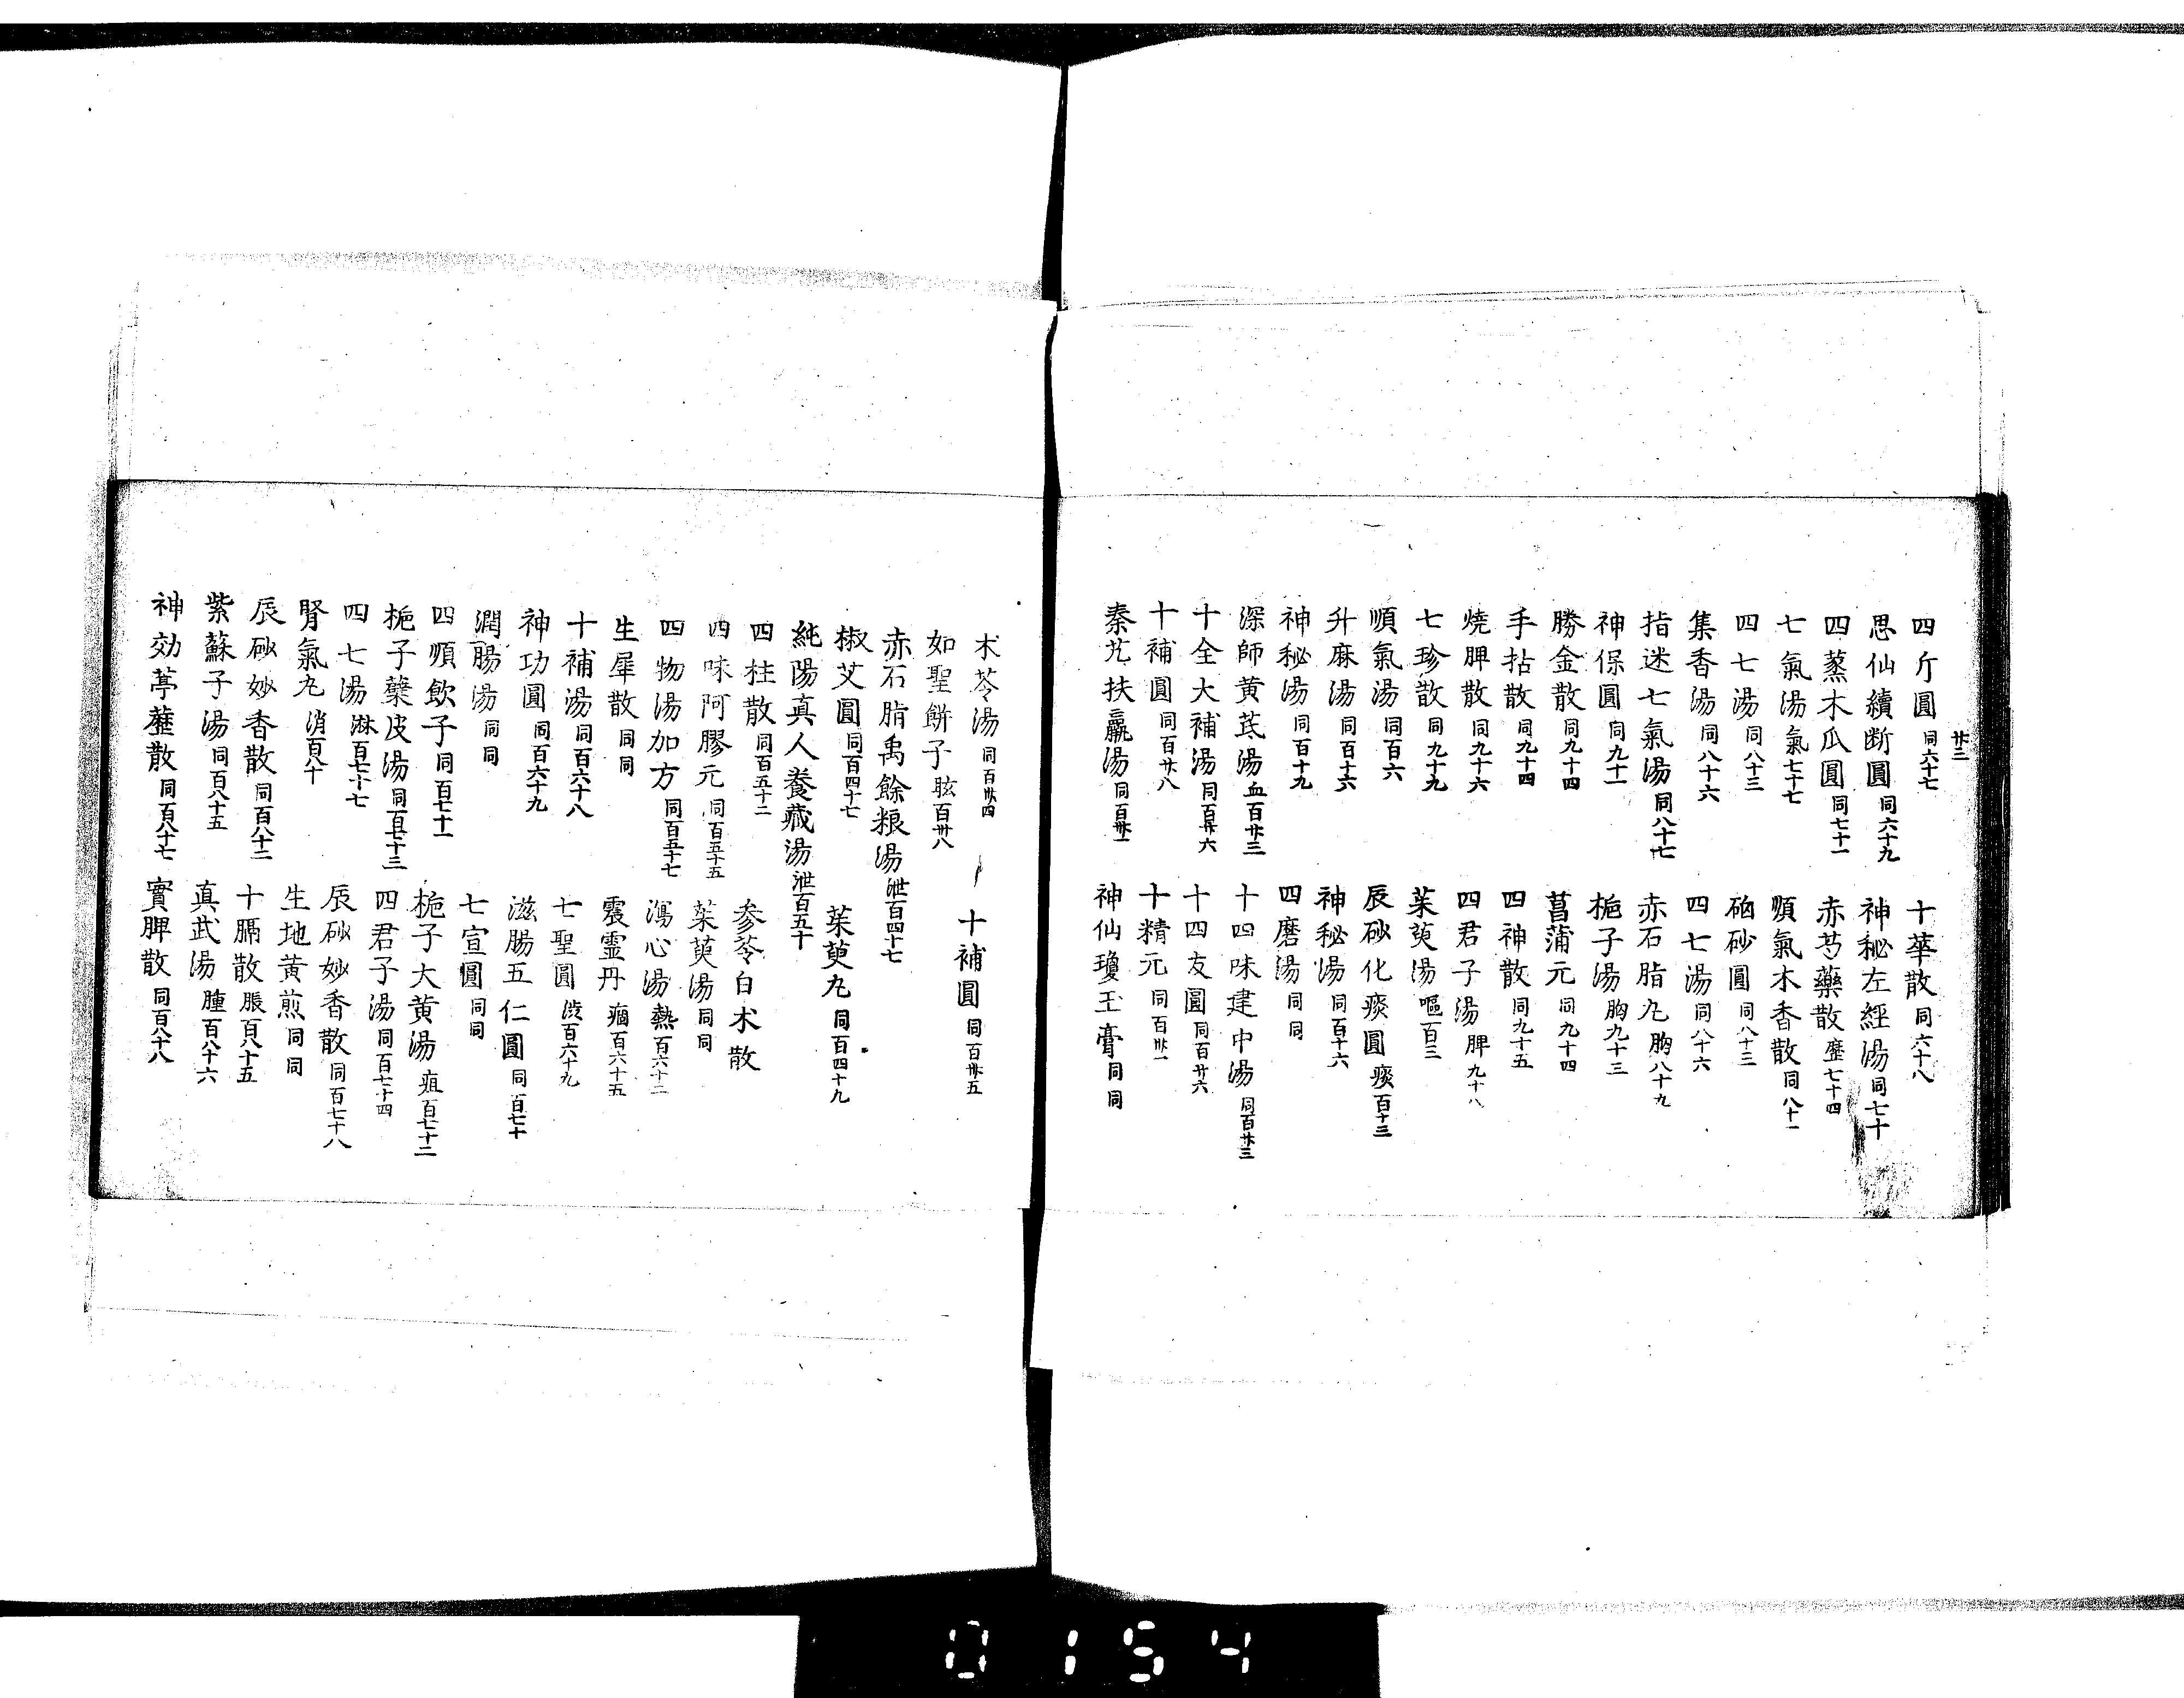 廿三
四斤圓 同六十七 十華散 同六十八
思仙續断圓 同六十九 神秘左經湯 同七十
四蒸木瓜圓 同七十一 赤芍藥散 𤵸七十四
七氣湯 氣七十七 順氣木香散 同八十一
四七湯 同八十三 硇砂圓 同八十三
集香湯 同八十六 四七湯 同八十六
指迷七氣湯 同八十七 赤石脂丸 胸八十九
神保圓 同九十一 梔子湯 胸九十三
勝金散 同九十四 菖蒲元 同九十四
手拈散 同九十四 四神散 同九十五
燒脾散 同九十六 四君子湯 脾九十八
七珍散 同九十九 茱萸湯 嘔百三
順氣湯 同百六 辰砂化痰圓 痰百十三
升麻湯 同百十六 神秘湯 同百十六
神秘湯 同百十九 四磨湯 同同
深師黄芪湯 血百廿三 十四味建中湯 同百廿三
十全大補湯 同百廿六 十四友圓 同百廿六
十補圓 同百廿八 十精元 同百卅一
秦艽扶羸湯 同百卅一 神仙瓊玉膏 同同
朮苓湯 同百卅四 十補圓 同百卅五
如聖餅子 眩百卅八
赤石脂禹餘粮湯 泄百四十七
椒艾圓 同百四十七 茱萸丸 同百四十九
純陽真人養藏湯 泄百五十
四柱散 同百五十二 参苓白朮散
四味阿膠元 同百五十五 茱萸湯 同同
四物湯加方 同百五十七 瀉心湯 熱百六十二
生犀散 同同 震霊丹 痼百六十五
十補湯 同百六十八 七聖圓 澁百六十九
神功圓 同百六十九 滋腸五仁圓 同百七十
潤腸湯 同同 七宣圓 同同
四順飲子 同百七十一 梔子大黄湯 疸百七十二
梔子蘗皮湯 同百七十三 四君子湯 同百七十四
四七湯 淋百七十七 辰砂妙香散 同百七十八
腎氣丸 消百八十 生地黄煎 同同
辰砂妙香散 同百八十二 十膈散 脹百八十五
紫蘇子湯 同百八十五 真武湯 腫百八十六
神効葶藶散 同百八十七 實脾散 同百八十八
0154